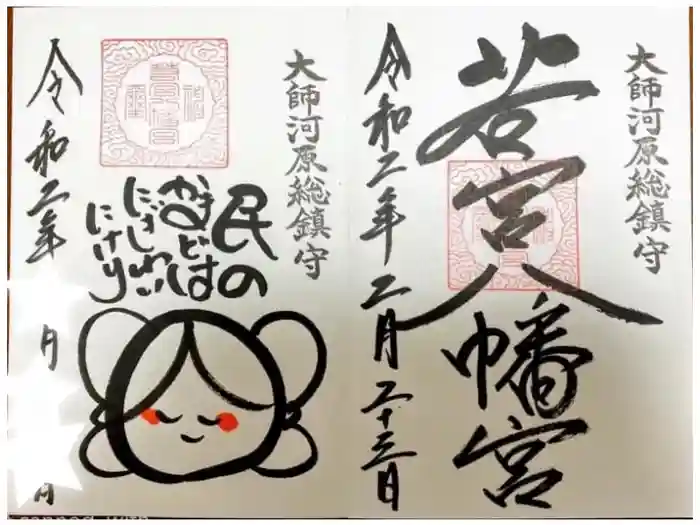 大師河原総鎮守
若宮八幡宮
令和二年二月二十三日
大師河原総鎮守
民の
かまどは
にぎわい
にけり
令和二年
月
月